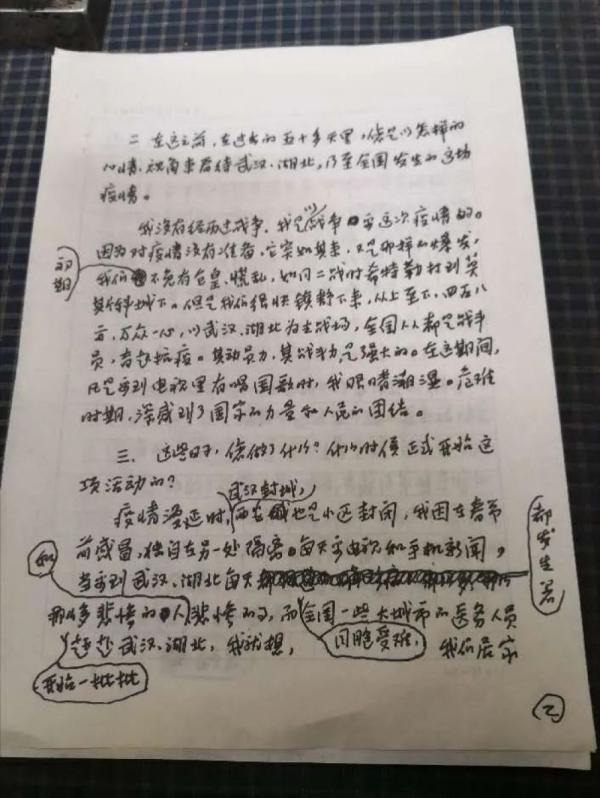 二 在这之前,在过去的五十多天里,您是以怎样的
心情、视角来看待武汉、湖北,乃至全国发生的这场
疫情。
我没有经历过战争,我是以战争 看这次疫情的。
因为对疫情没有准备,它突如其来,又是那样的爆发,
初期
我们 不免有仓皇、慌乱,如同二战时希特勒打到莫
斯科城下。但是我们很快镇静下来,从上至下,四面八
方,万众一心,以武汉、湖北为主战场,全国人人都是战斗
员,奋起抗疫。其动员力,其战斗力,是强大的。在这期间,
凡是看到电视里有唱国歌时,我眼睛潮湿。危难
时期,深感到了国家的力量和人民的团结。
三、这些日子,您做了什么?什么时候正式开始这
项活动的?
武汉封城,
疫情漫延时, 西安 也是小区封闭,我因在春节
前感冒,独自在另一处隔离。每天看电视和手机新闻,
都发生着
当看到武汉、湖北每天
那么多悲惨的人悲惨的事,而全国一些大城市的医务人员
赶赴武汉、湖北,我就想,
同胞受难,
我们居家
开始一批批
(2)